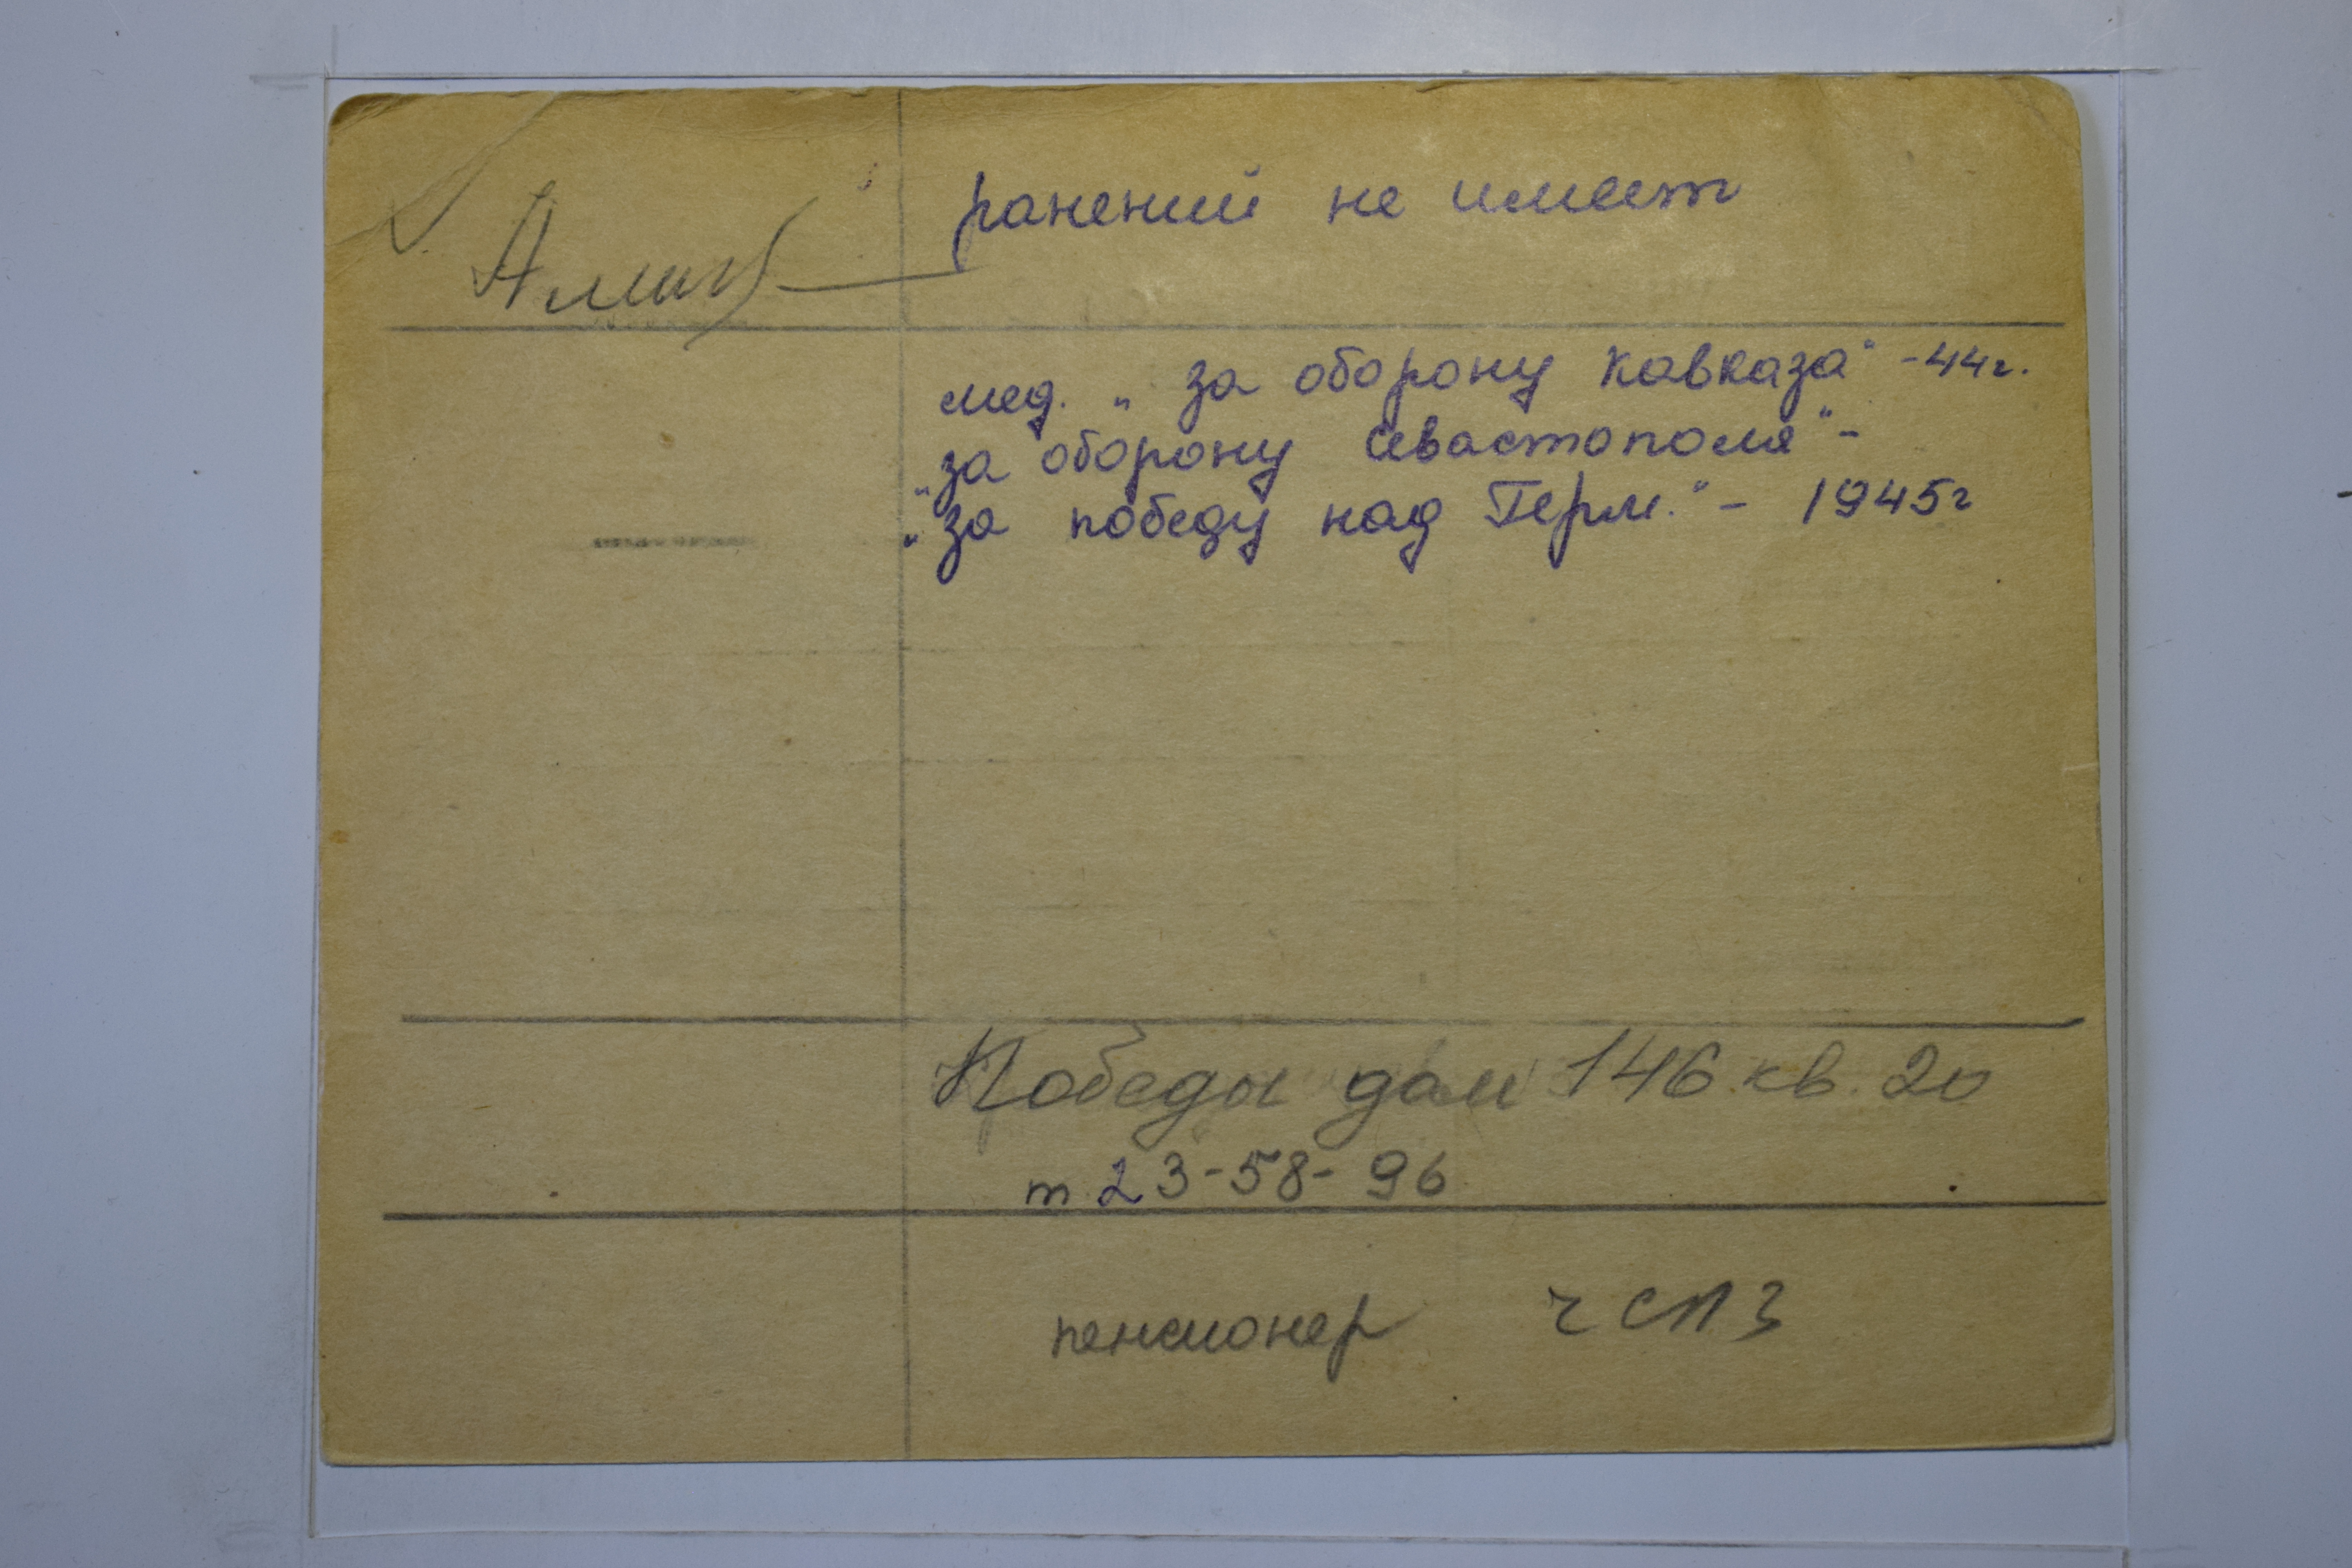 ранений не имеет
мед. „за оборону Кавказа" -44г.
„за оборону Севастополя" -
„за победу над Герм." - 1945г
Победы дом 146 кв. 20
т. 23-58-96
пенсионер ЧСПЗ